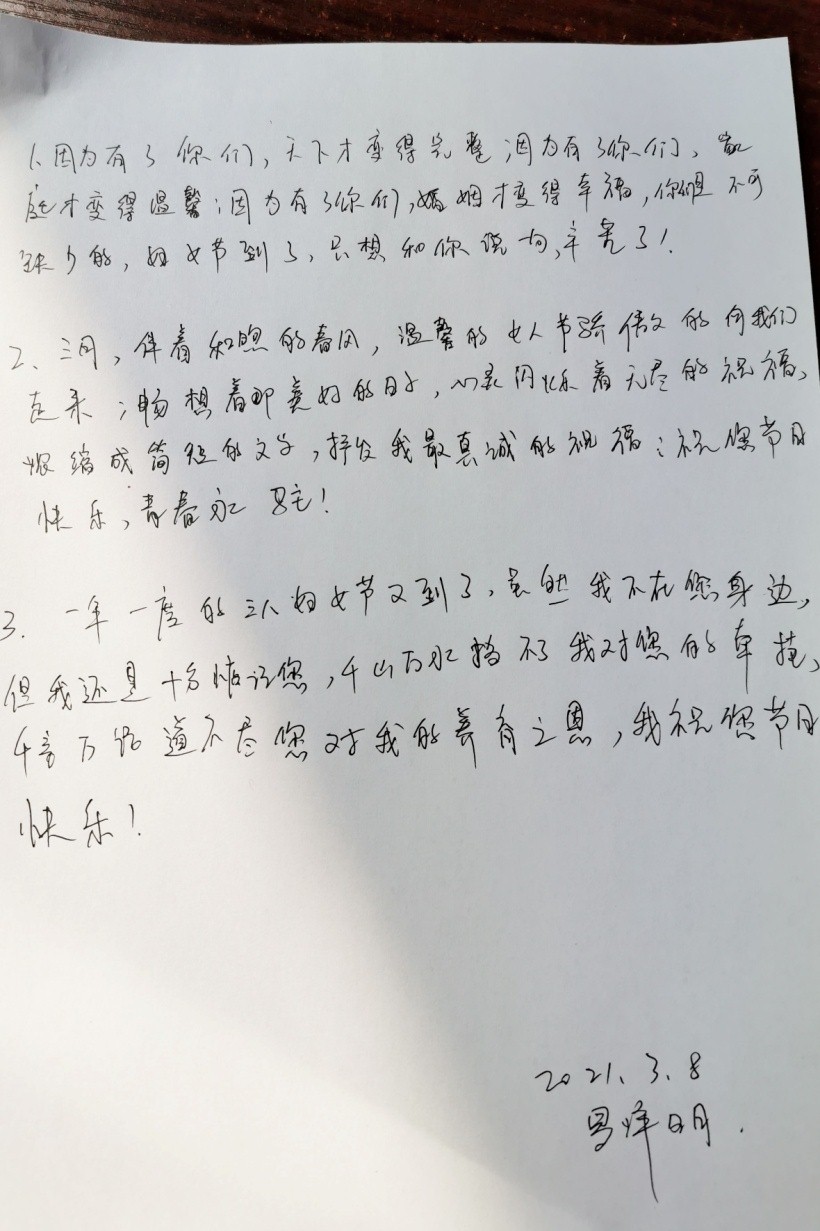 1、因为有了你们，天下才变得完整；因为有了你们、家
庭才变得温馨；因为有了你们，婚姻才变得幸福，你们是不可
缺少的，妇女节到了，只想和你说句，辛苦了！
2、三月，伴着和煦的春风，温馨的女人节骄傲的向我们
走来；畅想着那美好的日子，心灵闪烁着无尽的祝福，
浓缩成简短的文字，抒发我最真诚的祝福：祝您节日
快乐，青春永驻！
3. 一年一度的三八妇女节又到了，虽然我不在您身边，
但我还是十分惦记您，千山万水挡不了我对您的牵挂，
千言万语道不尽您对我的养育之恩，我祝您节日
快乐！
2021.3.8
明.